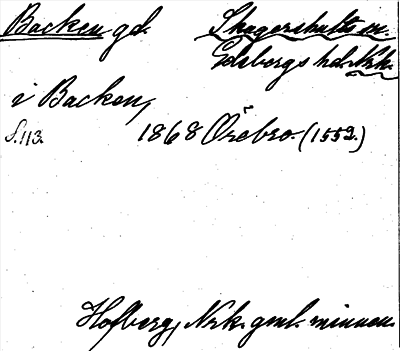 Backen gd. Skagershults sn.
Edsbergs hd. Nrk.
i Backen,
S. 113. 1868 Örebro. (1552.)
Hofberg, Nrk. gml. minnen.